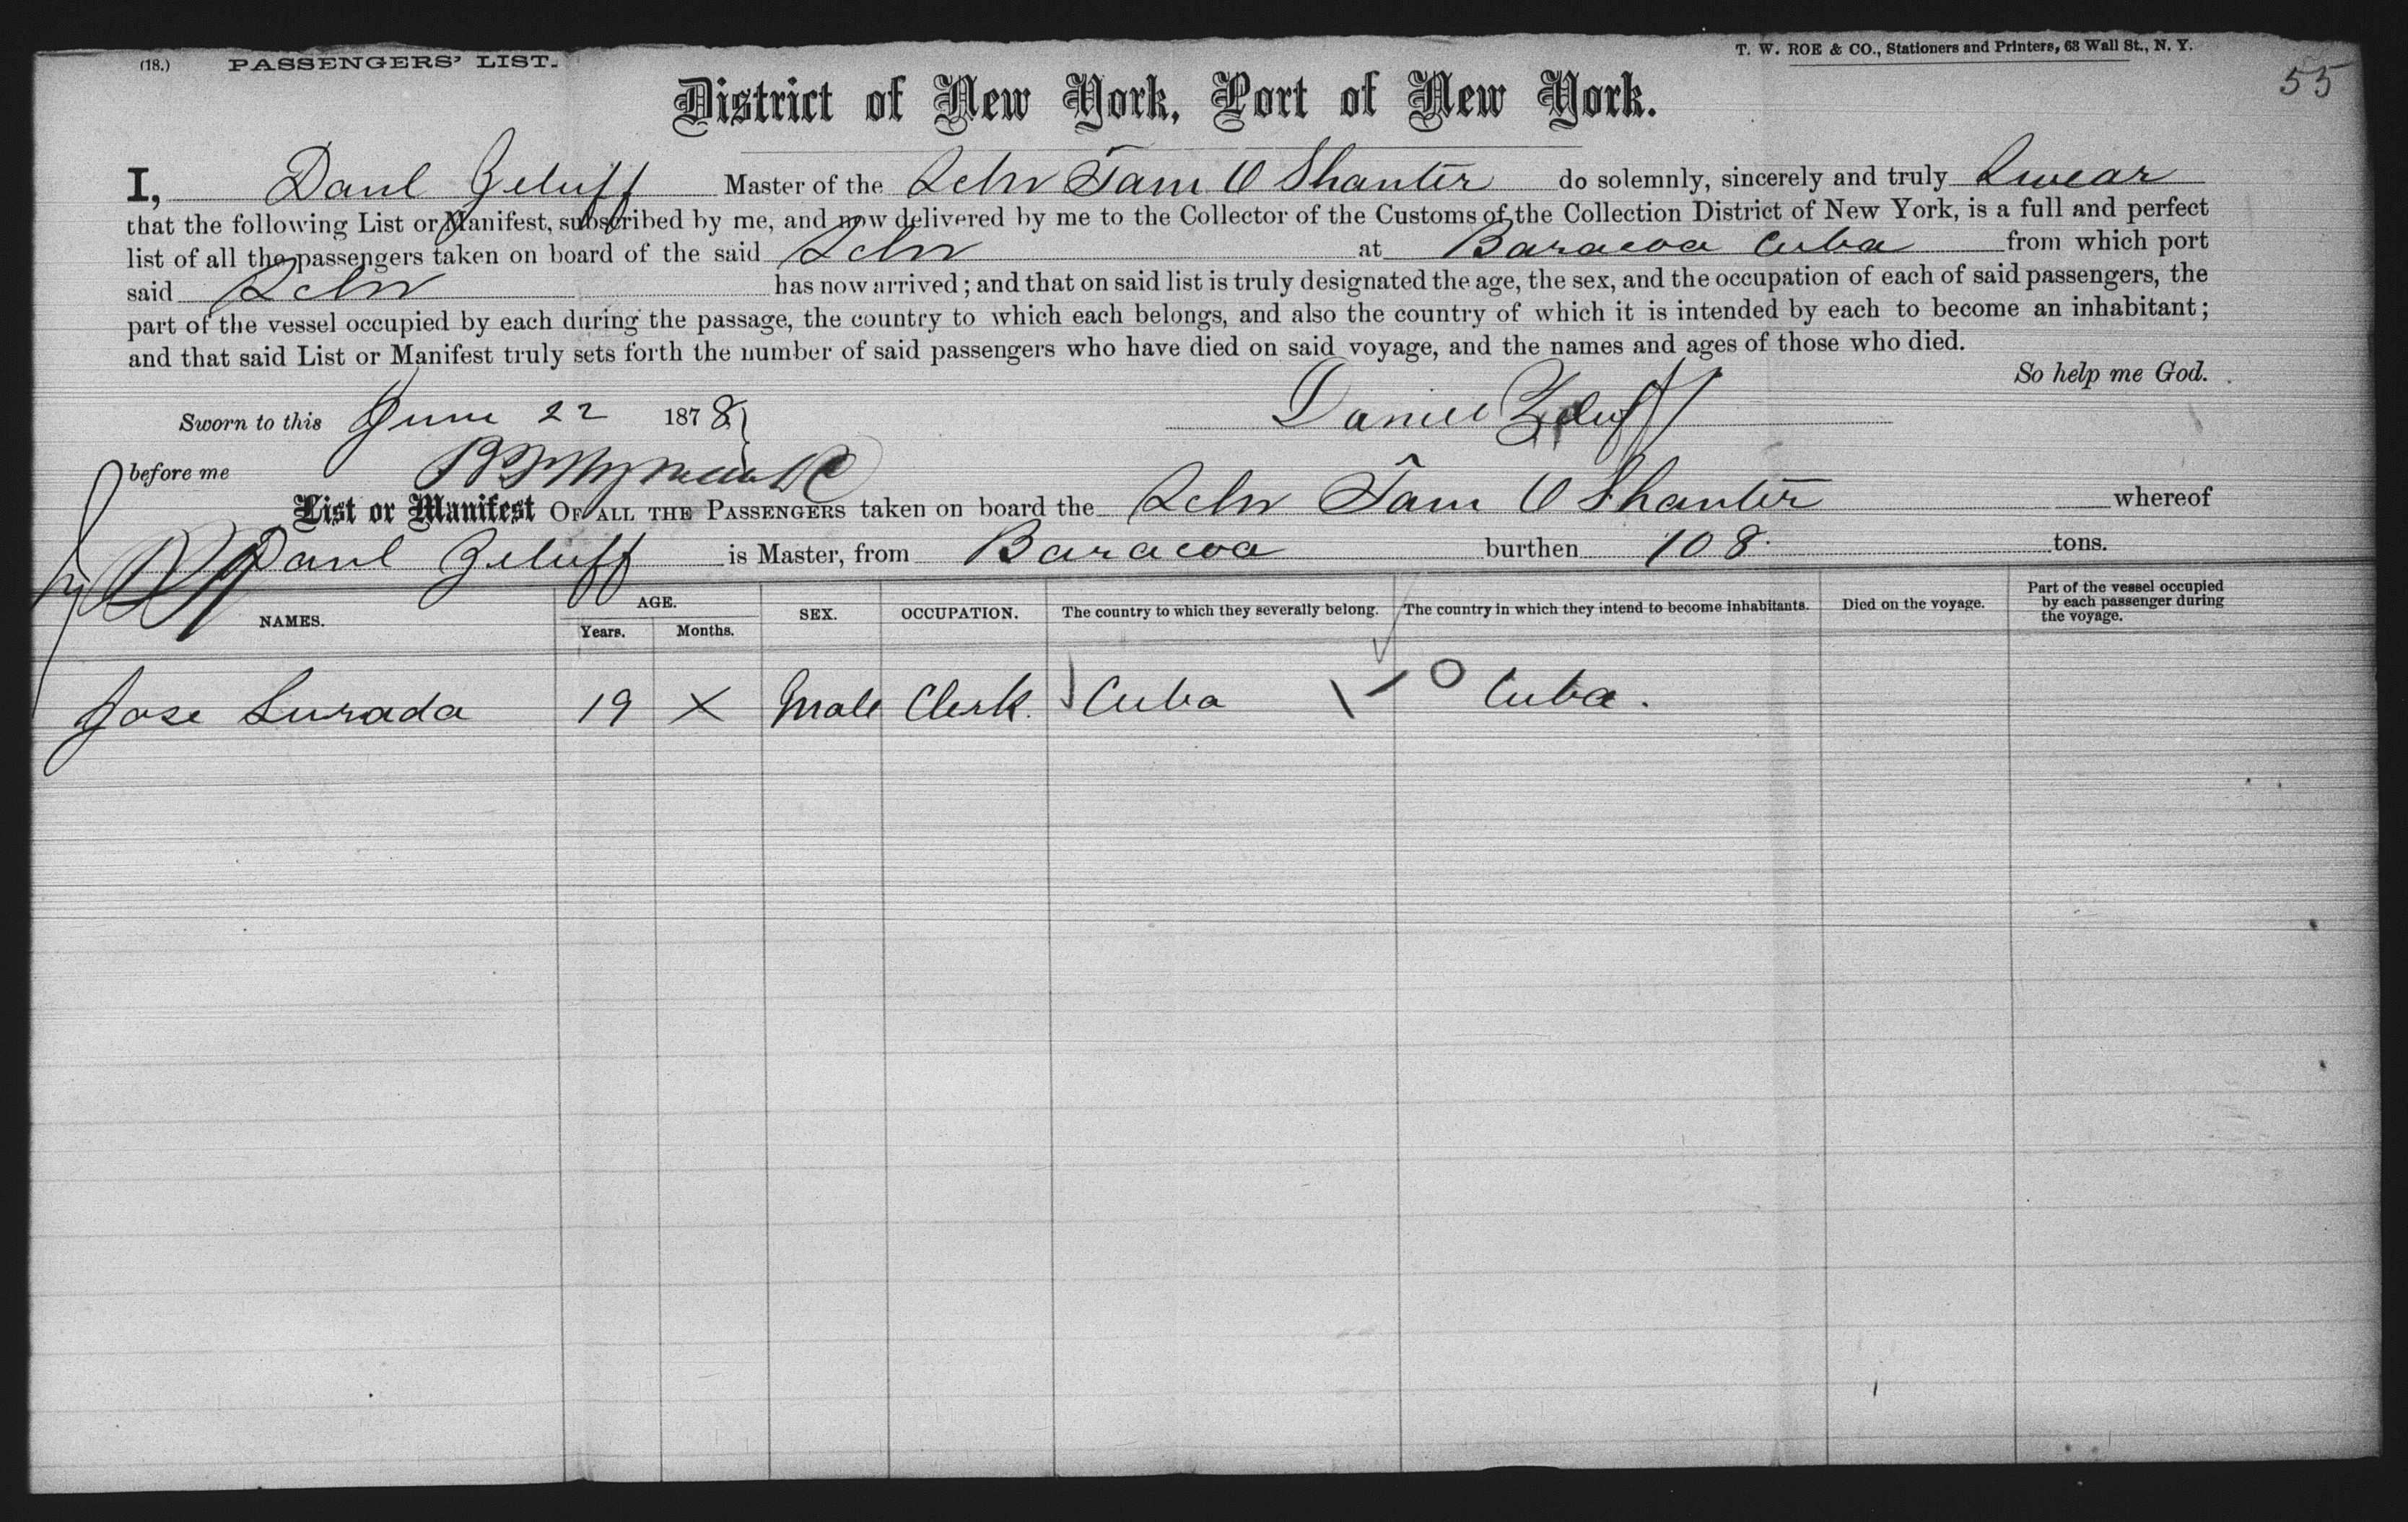 (18.) PASSENGERS' LIST.
T. W. ROE & CO., Stationers and Printers, 63 Wall St., N. Y.
55
District of New York, Port of New York.
I, Danl Zeluff Master of the Schr Tam O Shanter do solemnly, sincerely and truly Swear
that the following List or Manifest, subscribed by me, and now delivered by me to the Collector of the Customs of the Collection District of New York, is a full and perfect
list of all the passengers taken on board of the said Schr at Baracoa Cuba from which port
said Schr has now arrived; and that on said list is truly designated the age, the sex, and the occupation of each of said passengers, the
part of the vessel occupied by each during the passage, the country to which each belongs, and also the country of which it is intended by each to become an inhabitant;
and that said List or Manifest truly sets forth the number of said passengers who have died on said voyage, and the names and ages of those who died.
So help me God.
Sworn to this June 22 1878 Daniel Zeluff
before me
List or Manifest OF ALL THE PASSENGERS taken on board the Schr Tam O Shanter whereof
Danl Zeluff is Master, from Baracoa burthen 108 tons.
NAMES. AGE. Years. Months. SEX. OCCUPATION. The country to which they severally belong. The country in which they intend to become inhabitants. Died on the voyage. Part of the vessel occupied by each passenger during the voyage.
Jose Lurada 19 X Male Clerk. Cuba Cuba.